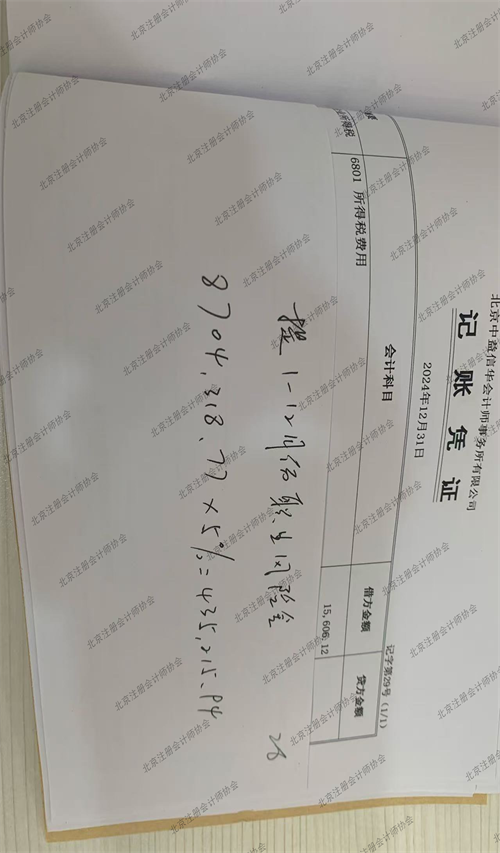 北京中益信华会计师事务所有限公司
记账凭证
2024年12月31日
记字第29号 (1/1)
会计科目 借方金额 贷方金额
所得税 6801 所得税费用 15,606.12
提1-12月份职业风险金 28
8704,318.77×5%=435,215.94
北京注册会计师协会